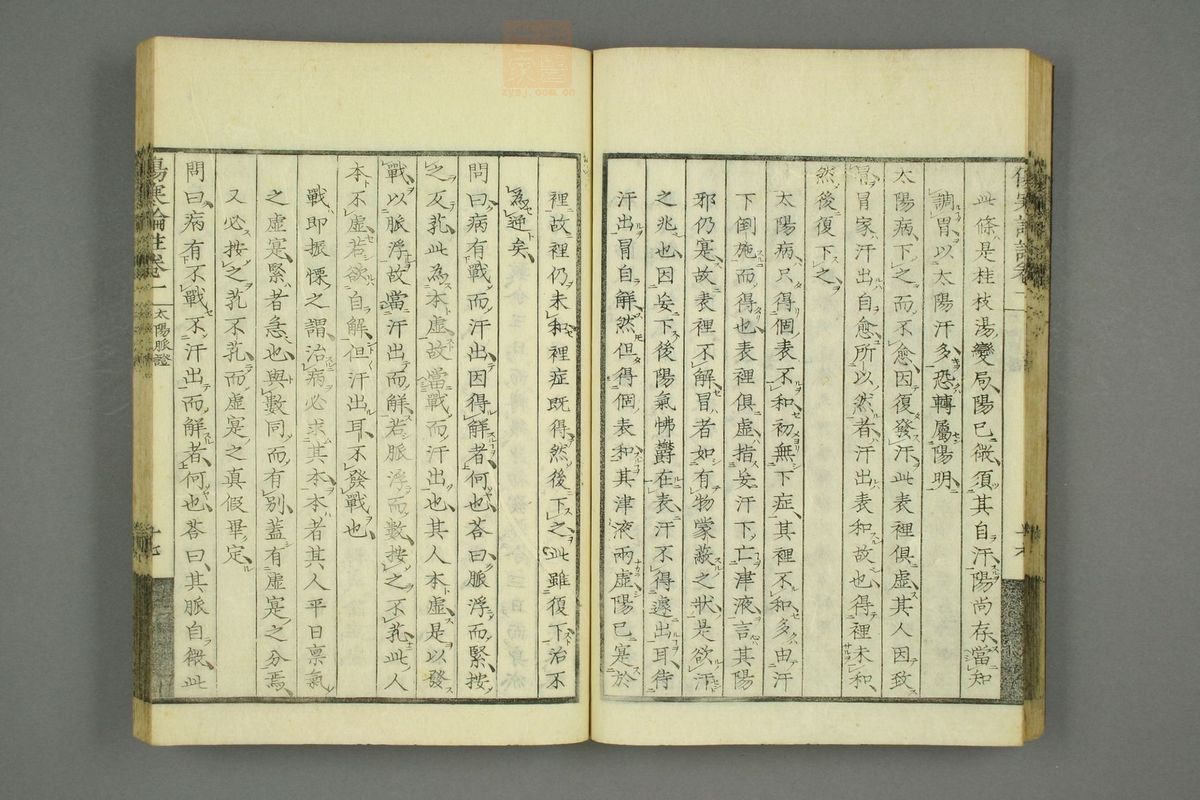 此條是桂枝湯變局陽已微須其自汗陽尚存當知
調胃以太陽汗多恐轉屬陽明
太陽病下之而不愈因復發汗此表裡俱虛其人因致
冒冒家汗出自愈所以然者汗出表和故也得裡未和
然後復下之
太陽病只得個表不和初無下症其裡不和多由汗
下倒施而得也表裡俱虛指妄汗下亡津液言其陽
邪仍寔故表裡不解冒者如有物蒙蔽之狀是欲汗
之兆也因妄下後陽氣怫鬱在表汗不得遽出耳待
汗出冒自解然但得個表和其津液兩虛陽已寔於
裡故裡仍未和裡症既得然後下之此雖復下治不
為逆矣
問曰病有戰而汗出因得解者何也答曰脈浮而緊按
之反芤此為本虛故當戰而汗出也其人本虛是以發
戰以脈浮故當汗出而解若脈浮而數按之不芤此人
本不虛若欲自解但汗出耳不發戰也
戰即振慄之謂治病必求其本本者其人平日稟氣
之虛寔緊者急也與數同而有別蓋有虛寔之分焉
又必按之芤不芤而虛寔之真假畢定
問曰病有不戰不汗出而解者何也答曰其脈自微此
傷寒論註卷二
太陽脈證
十七
zysj.com.cn